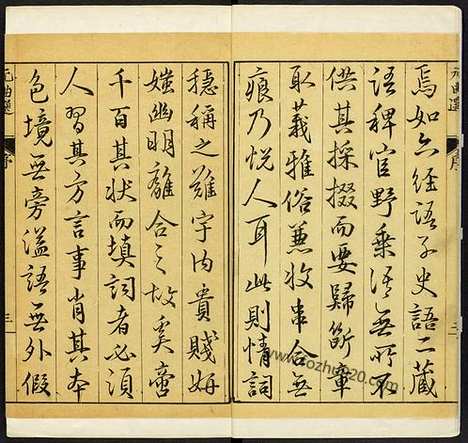 元曲選
序
焉如六經語子史語二藏
語稗官野乘語無所不
供其採掇而要歸斷章
取義雅俗兼收串合無
痕乃悅人耳此則情詞
穩稱之難宇內貴賤妍
媸幽明離合之故奚啻
千百其狀而填詞者必須
人習其方言事肖其本
色境無旁溢語無外假
元曲選
序
三